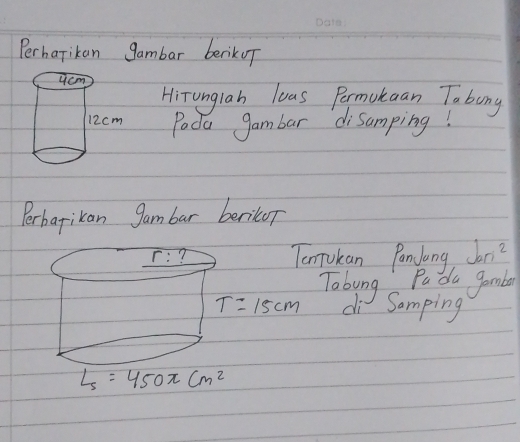 Date.
Perhatikan gambar berikut
4cm
12cm
Hitunglah luas Permukaan Tabung
Pada gambar disamping !
Perhatikan gambar berikut
r : ?
T = 15cm
Ls = 450π cm²
Tentukan Panjang Jari²
Tabung Pada gambar
di Samping